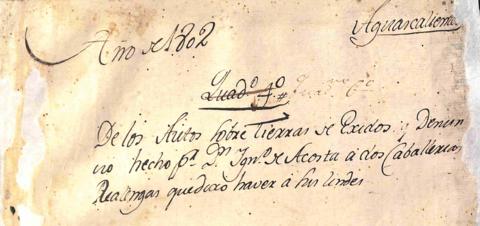 Año de 1802
Aguascalientes
Quadº 4º
De los Autos sobre Tierras de Exidos; y Denun
cio hecho pr. Dn. Ignº de Acosta á dos Caballerias
Realengas que dixo haver á sus lindes